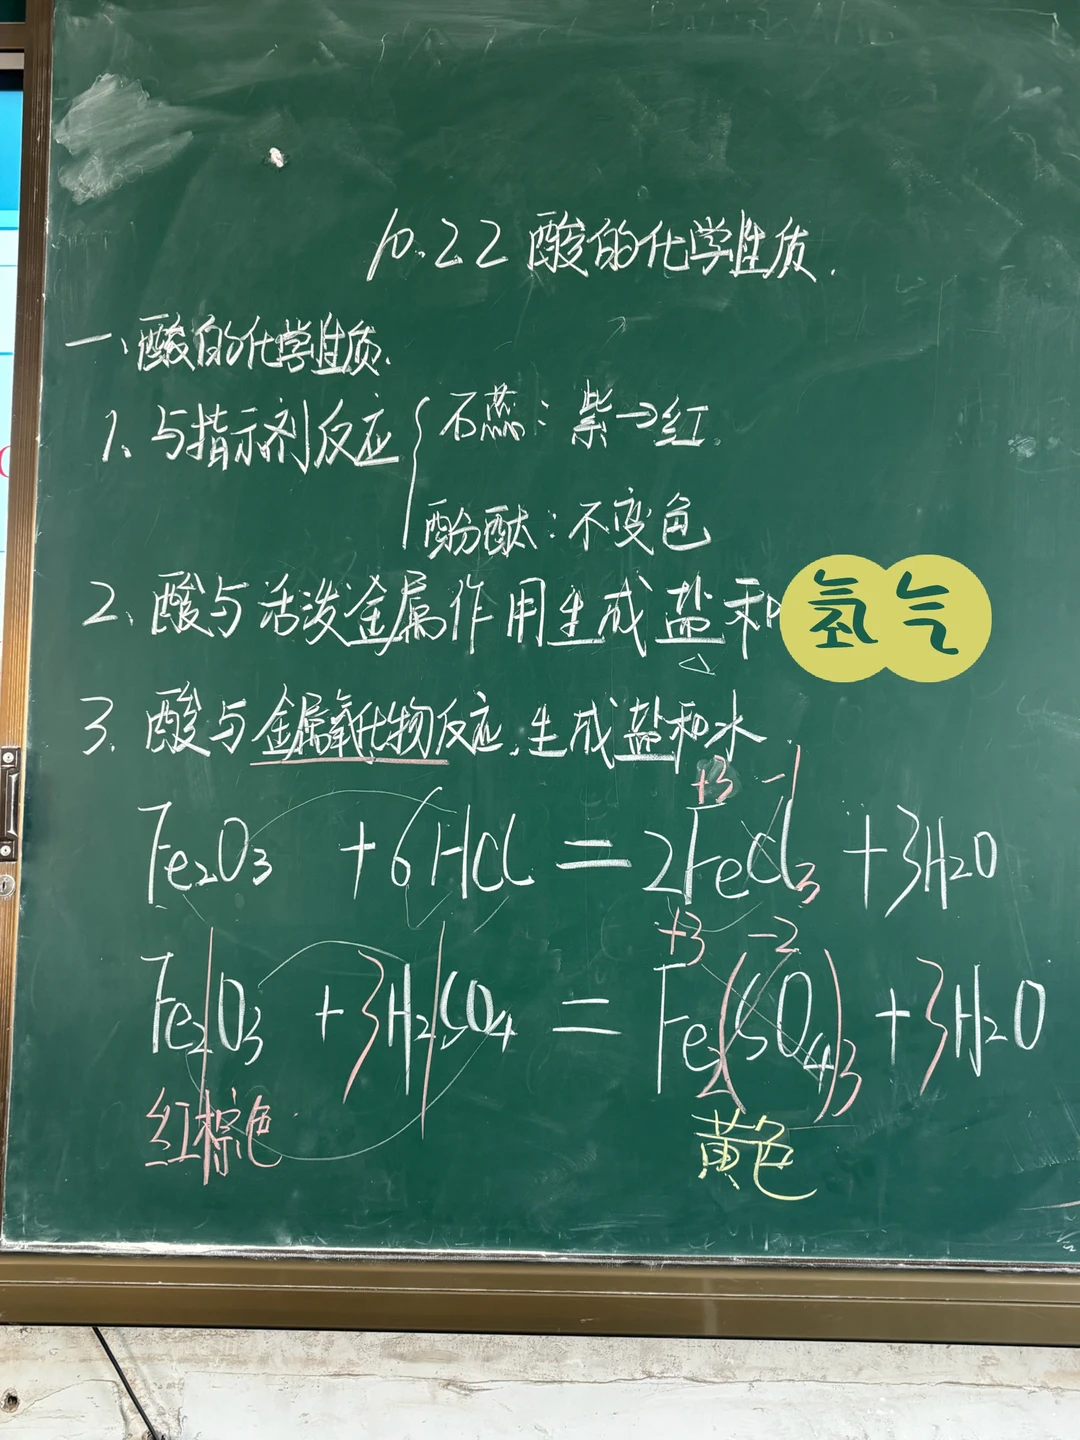 10.2.2 酸的化学性质.
一、酸的化学性质.
1、与指示剂反应{石蕊：紫→红.
酚酞：不变色
2、酸与活泼金属作用生成盐和氢气
3. 酸与金属氧化物反应,生成盐和水.
+3 -1
Fe₂O₃ +6HCl = 2FeCl₃ +3H₂O
+3 -2
Fe₂O₃ +3H₂SO₄ = Fe₂(SO₄)₃ +3H₂O
红棕色 黄色